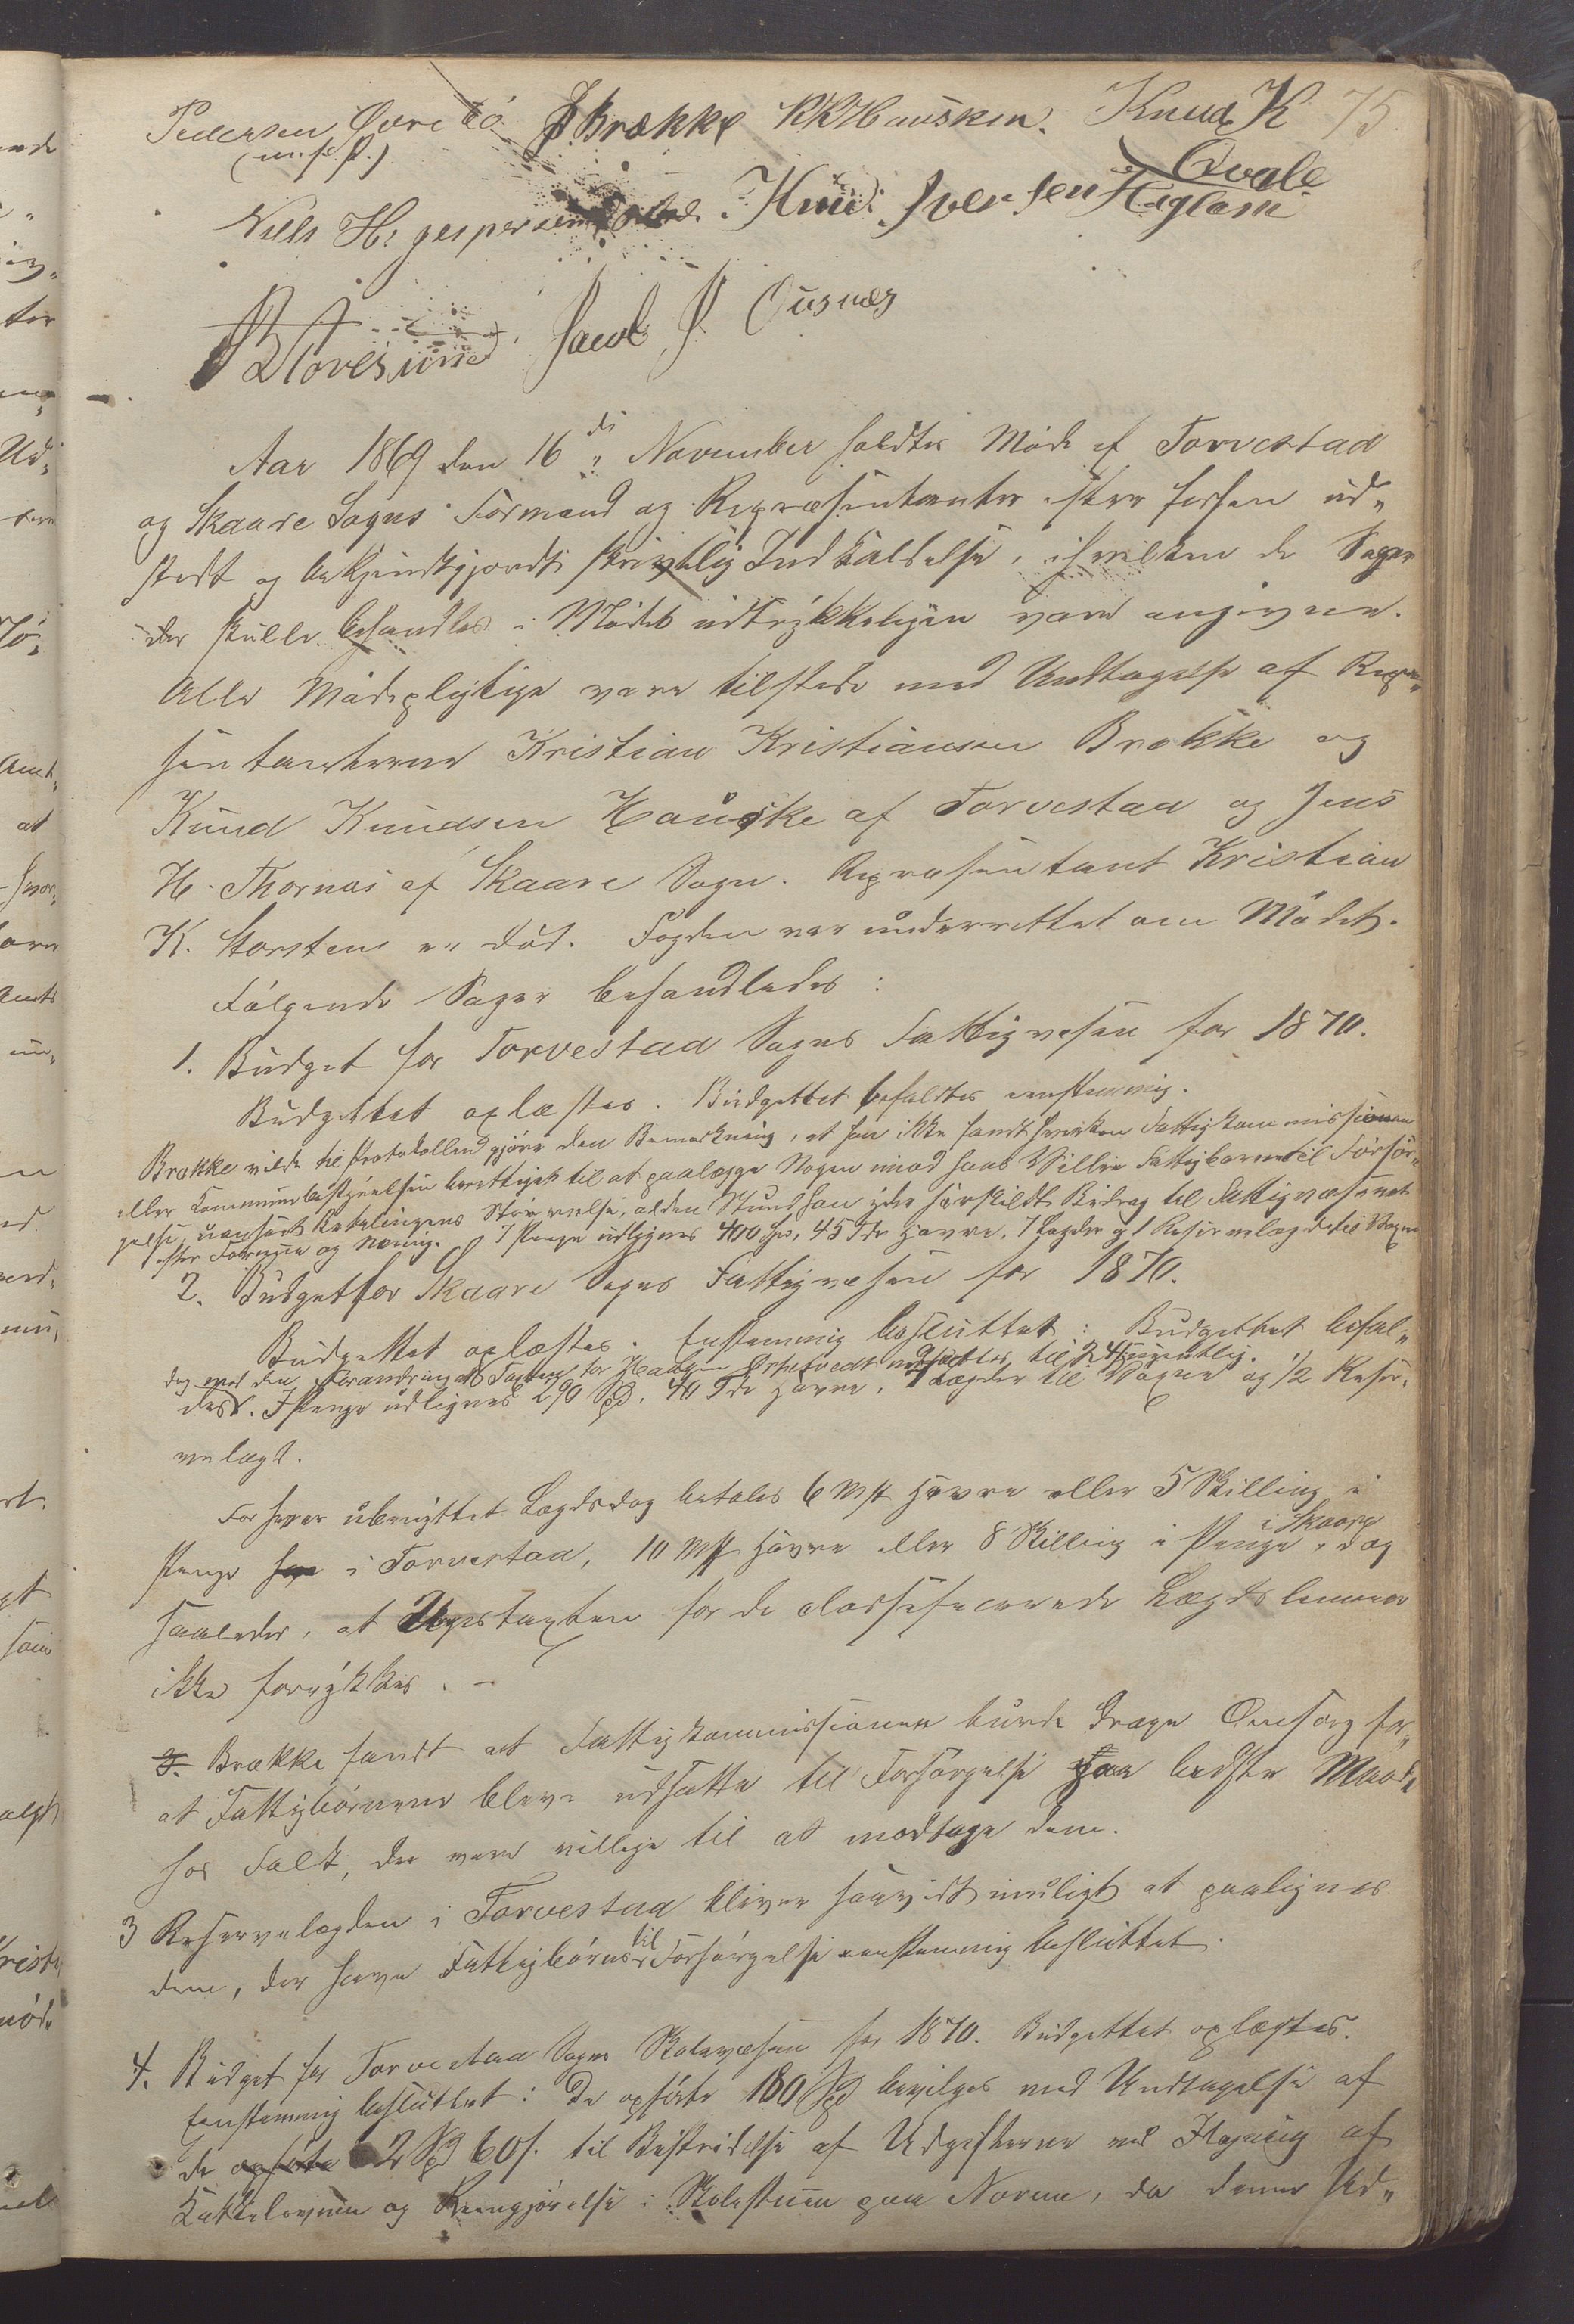 Pedersen Øvre Bø J. Brække K K Hausken. Knud K 75
(m. f. P.) Qvale
Niels H. Jespersen Knud Iversen Haglam
B Storesund Jacob J. Ousnæs
Aar 1869 den 16de November holdtes Møde af Torvestad
og Skaare Sogns Formænd og Repræsentanter efter forhen ud„
stedt og bekjendtgjordt skrivtlig Indkaldelse, i hvilken de Sager
der skulle behandles i Mødet udtrykkeligen vare angivne.
Alle Mødepligtige vare tilstede med Undtagelse af Repræ„
sentanterne Kristian Kristiansen Brække og
Knud Knudsen Hauske af Torvestad og Jens
H. Thornæs af Skaare Sogn. Repræsentant Kristian
K. Storsten er død. Fogden var underrettet om Mødet.
Følgende Sager behandledes:
1. Budget for Torvestad Sogns Fattigvæsen for 1870.
Budgettet oplæstes. Budgettet befaldtes eenstemmig.
Brække vilde til Protokollen gjøre den Bemærkning, at han ikke fandt hverken Fattigkommissionen
eller Kommunebestyrelsen berettiget til at paalægge Nogen imod hans Villie Fattigbørn til Forsør„
gelse, uanseet Betalingens Størrelse, alden Stund han yder særskildt Bidrag til Fattigvæsenet
efter Formue og Næring. I Penge udlignes 400 Spd, 45 Tdr Havre, 7 Lægder og 1 Reservelægde til Voxne
2. Budget for Skaare Sogns Fattigvæsen for 1870.
Budgettet oplæstes. Enstemmig besluttet: Budgettet befal„
dog med den Forandring at Taxten for nedsættes til 24 ugentlig.
des. I Penge udlignes 290 Spd, 40 Tdr Havre, Lægder til Voxne og 1/2 Reser„
velægd.
For hver ubenyttet Lægdsdag betales 6 Mk Havre eller 5 Skilling i
Penge i Torvestad, 10 Mk Havre eller 8 Skilling i Penge i Skaare, dog
saaledes, at Ugestaxten for de classificerede Lægdslemmer
ikke forrykkes. –
3. Brække fandt at Fattigkommissionen burde drage Omsorg for„
at Fattigbørnene bleve udsatte til Forsørgelse paa bedste Maade
hos Folk, der vare villige til at modtage dem.
3 Reservelægden i Torvestad bliver saavidt muligt at paalignes
dem, der have Fattigbørn til Forsørgelse eenstemmig besluttet.
4. Budget for Torvestad Sogns Skolevæsen for 1870. Budgettet oplæstes.
Eenstemmig besluttet: De opførte 180 Spd bevilges med Undtagelse af
de opførte 2 Spd 60 s. til Bestridelse af Udgifterne ved af
Kakkelovnen og Rengjørelse i Skolestuen paa Norem, da denne Ud„